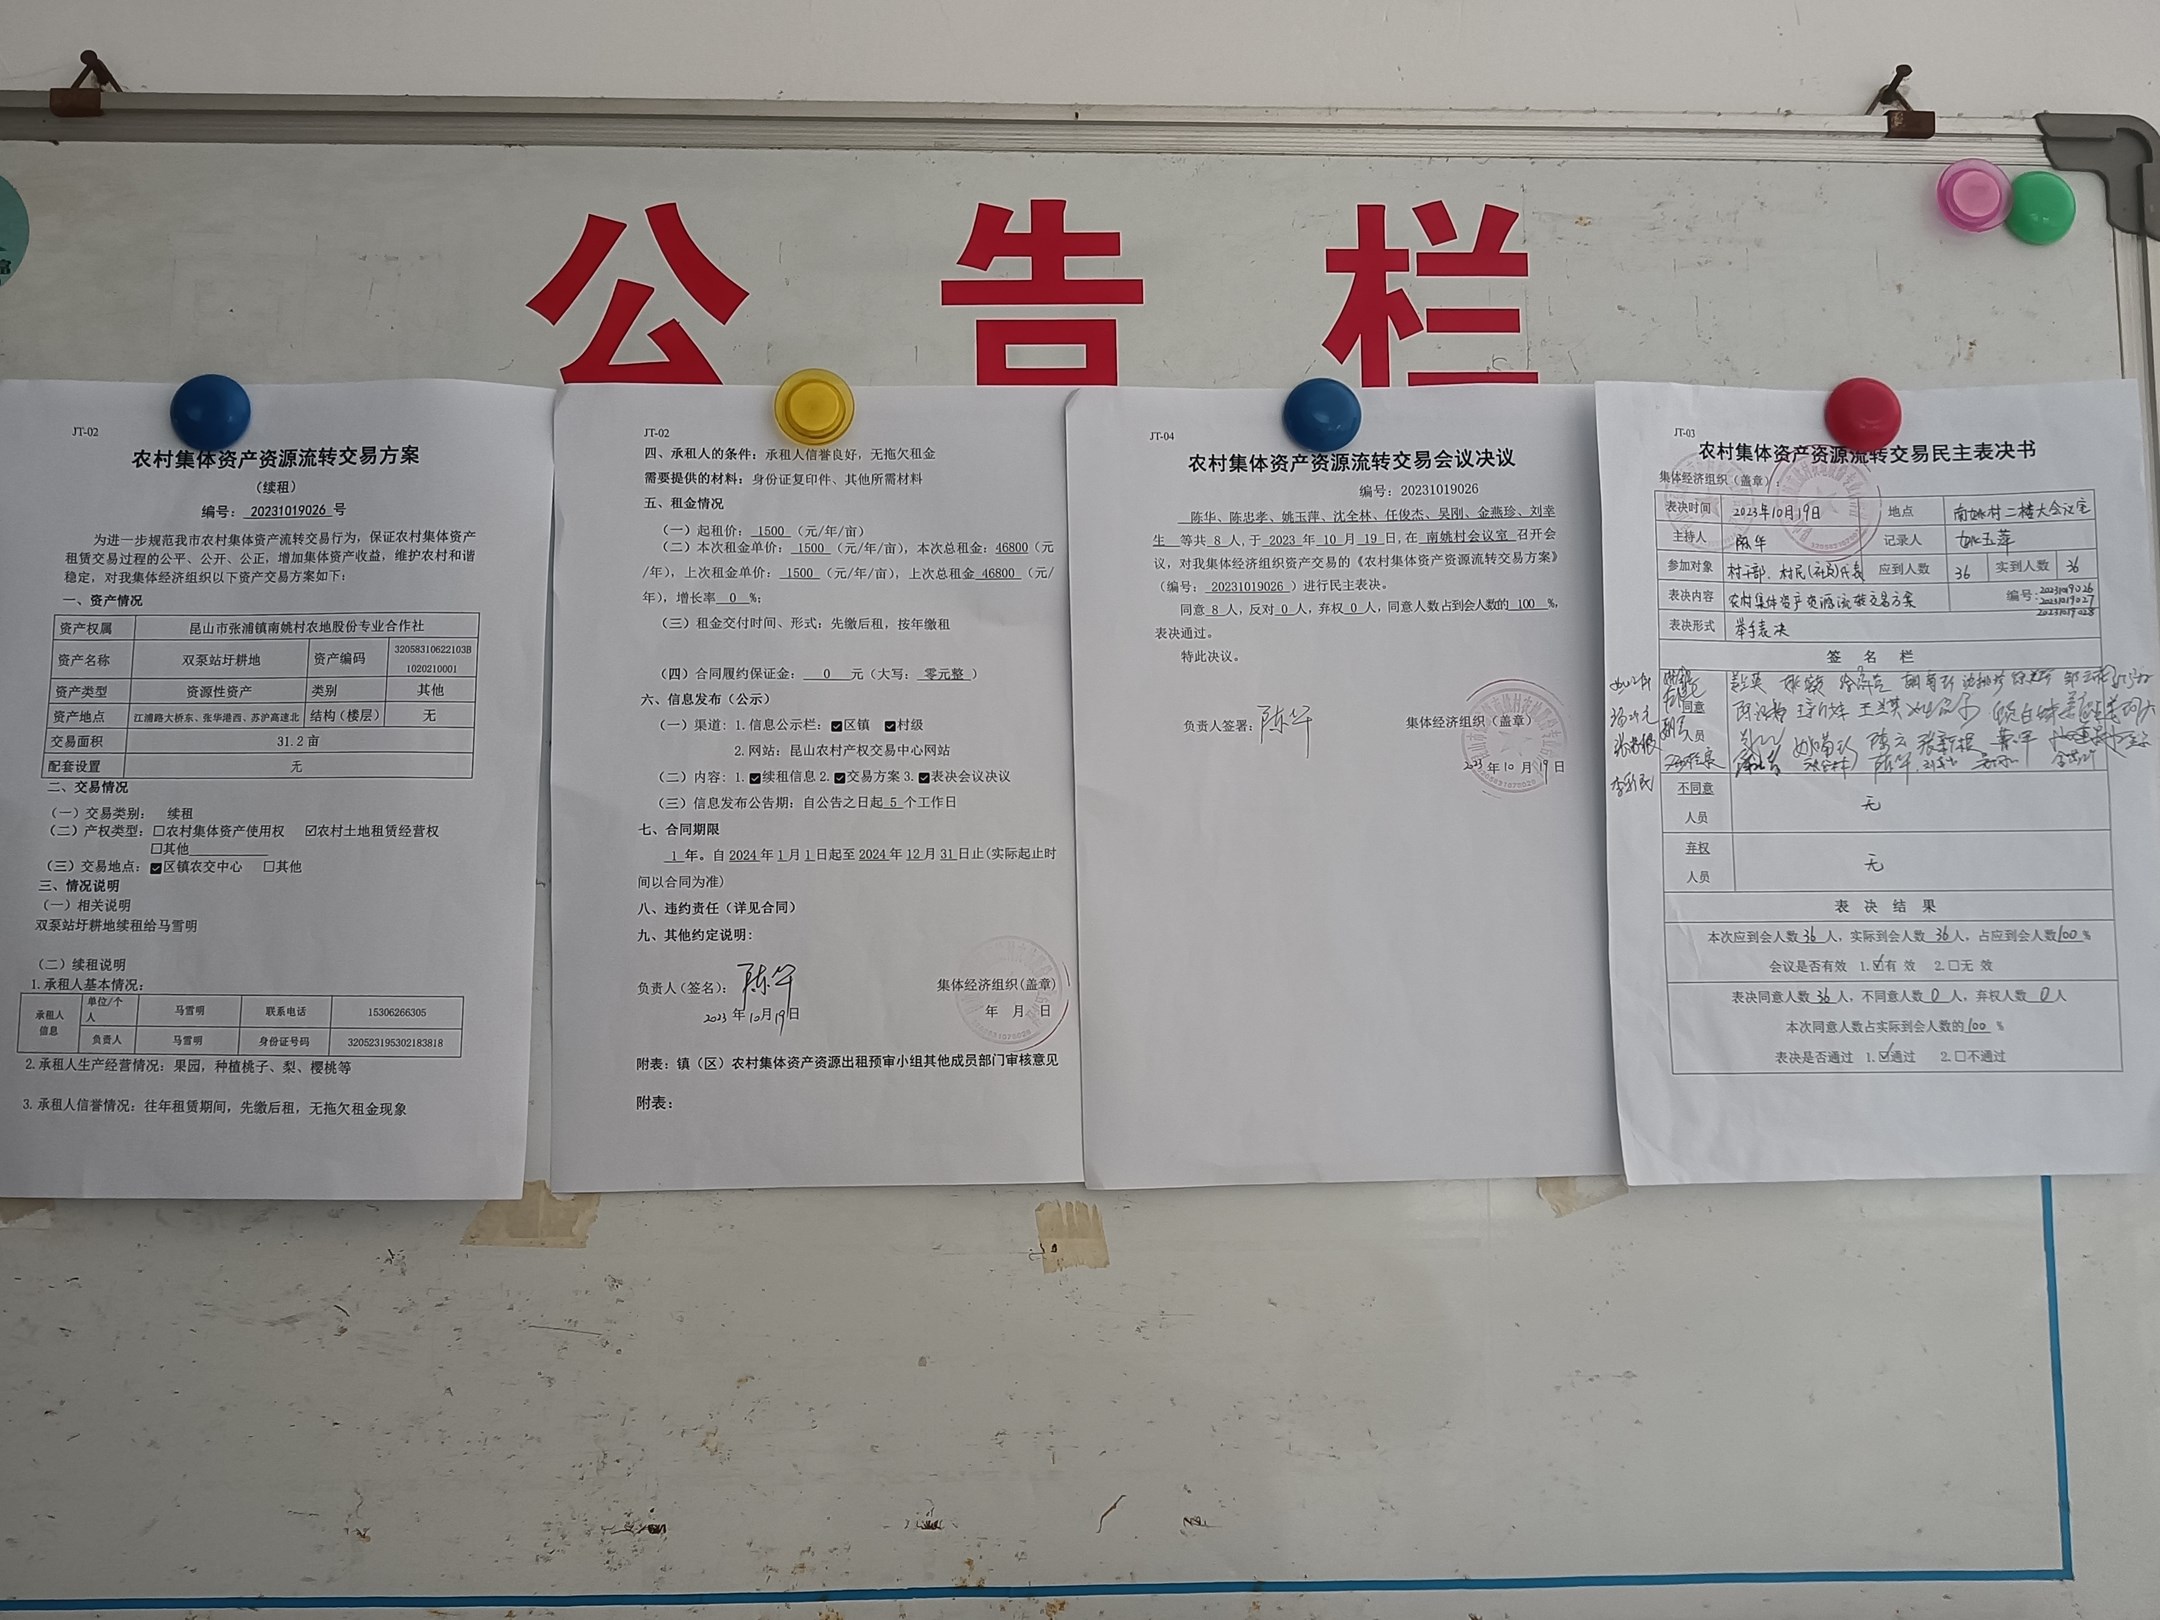 公告栏
JT-02
农村集体资产资源流转交易方案
（续租）
编号： 20231019026 号
为进一步规范我市农村集体资产流转交易行为，保证农村集体资产
租赁交易过程的公平、公开、公正，增加集体资产收益，维护农村和谐
稳定，对我集体经济组织以下资产交易方案如下：
一、资产情况
资产权属 昆山市张浦镇南姚村农地股份专业合作社
资产名称 双泵站圩耕地 资产编码 32058310622103B
1020210001
资产类型 资源性资产 类别 其他
资产地点 江浦路大桥东、张华港西、苏沪高速北 结构（楼层） 无
交易面积 31.2 亩
配套设置 无
二、交易情况
（一）交易类别： 续租
（二）产权类型：☐农村集体资产使用权 ☑农村土地租赁经营权
☐其他
（三）交易地点：☑区镇农交中心 ☐其他
三、情况说明
（一）相关说明
双泵站圩耕地续租给马雪明
（二）续租说明
1.承租人基本情况：
承租人信息 单位/个人 马雪明 联系电话 15306266305
负责人 马雪明 身份证号码 320523195302183818
2.承租人生产经营情况：果园，种植桃子、梨、樱桃等
3.承租人信誉情况：往年租赁期间，先缴后租，无拖欠租金现象
JT-02
四、承租人的条件：承租人信誉良好，无拖欠租金
需要提供的材料：身份证复印件、其他所需材料
五、租金情况
（一）起租价： 1500 （元/年/亩）
（二）本次租金单价： 1500 （元/年/亩），本次总租金：46800（元
/年），上次租金单价： 1500 （元/年/亩），上次总租金 46800 （元/
年），增长率 0 %；
（三）租金交付时间、形式：先缴后租，按年缴租
（四）合同履约保证金： 0 元（大写： 零元整 ）
六、信息发布（公示）
（一）渠道：1.信息公示栏：☑区镇 ☑村级
2.网站：昆山农村产权交易中心网站
（二）内容：1.☑续租信息 2.☑交易方案 3.☑表决会议决议
（三）信息发布公告期：自公告之日起 5 个工作日
七、合同期限
1 年。自 2024 年 1 月 1 日起至 2024 年 12 月 31 日止(实际起止时
间以合同为准)
八、违约责任（详见合同）
九、其他约定说明：
负责人（签名）：陈华 集体经济组织(盖章)
2023 年 10 月 19 日 年 月 日
附表：镇（区）农村集体资产资源出租预审小组其他成员部门审核意见
附表：
JT-04
农村集体资产资源流转交易会议决议
编号：20231019026
陈华、陈忠孝、姚玉萍、沈全林、任俊杰、吴刚、金燕珍、刘幸
生 等共 8 人，于 2023 年 10 月 19 日，在 南姚村会议室 召开会
议，对我集体经济组织资产交易的《农村集体资产资源流转交易方案》
（编号： 20231019026 ）进行民主表决。
同意 8 人，反对 0 人，弃权 0 人，同意人数占到会人数的 100 %，
表决通过。
特此决议。
负责人签署：陈华 集体经济组织（盖章）
2023 年 10 月 19 日
JT-03
农村集体资产资源流转交易民主表决书
集体经济组织（盖章）：
表决时间 2023年10月19日 地点 南姚村二楼大会议室
主持人 陈华 记录人 姚玉萍
参加对象 村干部、村民(社员)代表 应到人数 36 实到人数 36
表决内容 农村集体资产资源流转交易方案 编号：20231019026
20231019027
20231019028
表决形式 举手表决
签 名 栏
同意
人员
不同意
人员
无
弃权
人员
无
表 决 结 果
本次应到会人数 36 人，实际到会人数 36 人，占应到会人数 100 %
会议是否有效 1.☑有 效 2.☐无 效
表决同意人数 36 人，不同意人数 0 人，弃权人数 0 人
本次同意人数占实际到会人数的 100 %
表决是否通过 1.☑通过 2.☐不通过